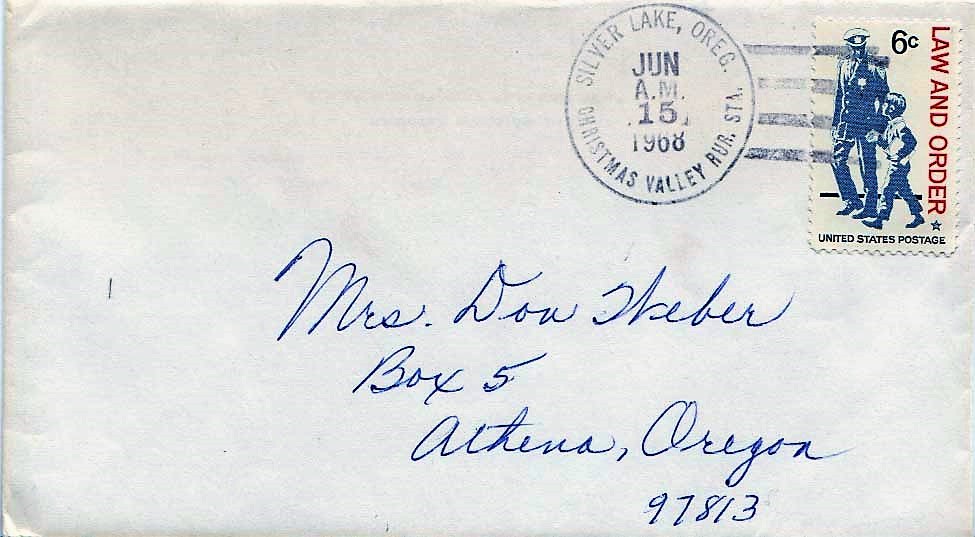 SILVER LAKE, OREG.
JUN
A.M.
15
1968
CHRISTMAS VALLEY RUR. STA.
6c
LAW AND ORDER
UNITED STATES POSTAGE
Mrs. Don
Box 5
Athena, Oregon
97813